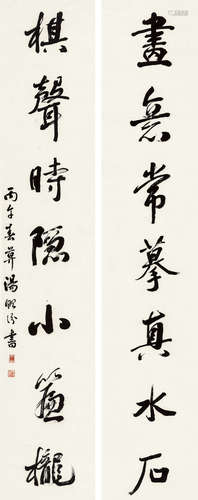 畫意常摹真水石
棋聲時隱小簾櫳
丙午春算湯貽汾書